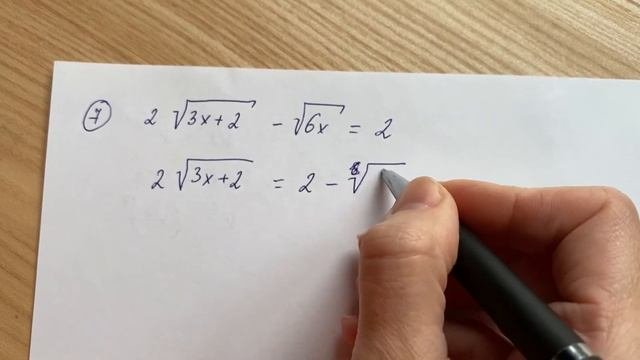 7 2 √3x+2 - √6x = 2
2 √3x+2 = 2 - √